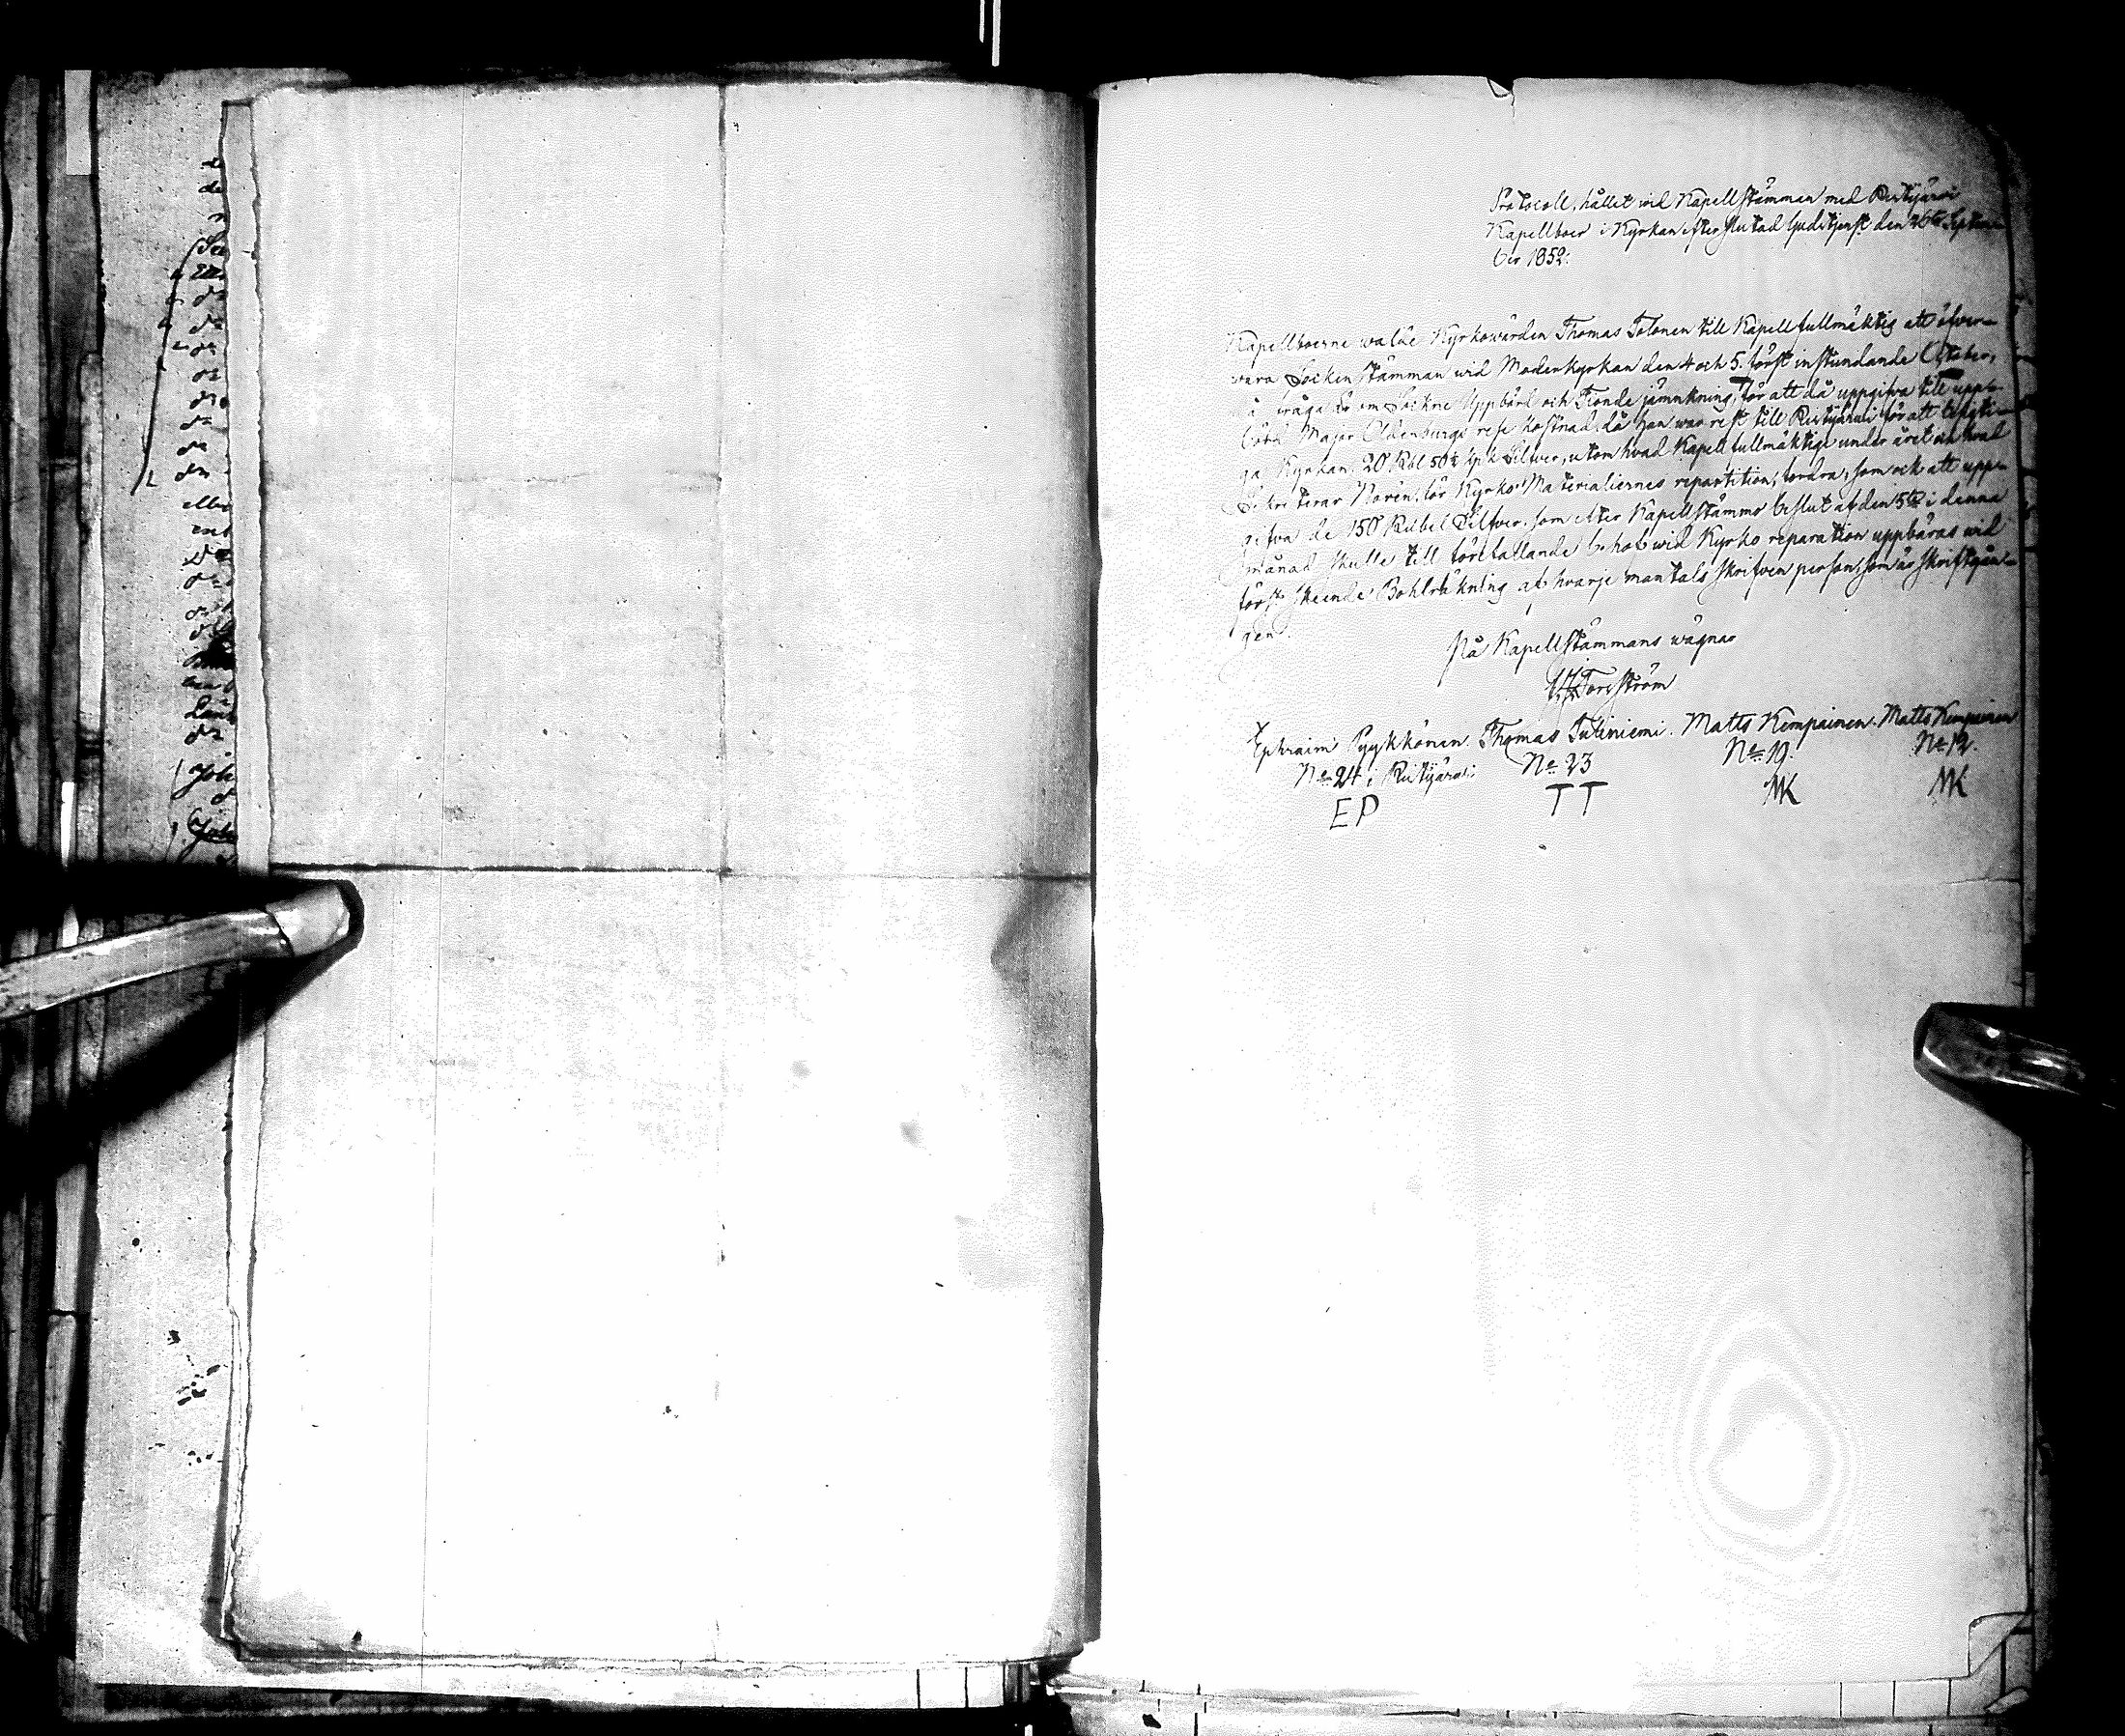 Protocoll, hållet wid Kapellstämman med Ristijärwi
Kapellboer i Kyrkan efter slutad Gudstjenst den 26te Septem
ber 1852.
Kapellboerne walde Kyrkowärden Thomas Tolonen till Kapellfullmäktig att öfver-
vara Sockenstämman wid Moderkyrkan den 4 och 5. först instundande October,
i fråga om Sockne Uppbörd och Tionde jämnkning, för att då uppgifva till upp-
börd Major Oldenburgs rese kostnad, då han war rest till Ristijärwi för att besigti-
ga Kyrkan, 20 Rbl 50 kpk Silfver, utom hvad Kapellfullmäktige under året och hvad
Sekreterar Norén, för Kyrko Materialiernes repartition, fordra, som ock att upp-
gifva de 150 Rubel Silfver, som efter Kapellstämmo beslut af den 5te i denna
månad skulle till förefallande behof wid Kyrko reparation uppbäras wid
först skeende Bohlräkning af hvarje mantals skrifven person, som är skriftgån-
gen.
På Kapellstämmans wägnar
Forsström
Ephraim Pyykkönen. Thomas Tuliniemi. Matts Kempainen. Matts Kempainen
No 24 i Ristijärwi No 23 No 19. No 12.
EP TT MK MK